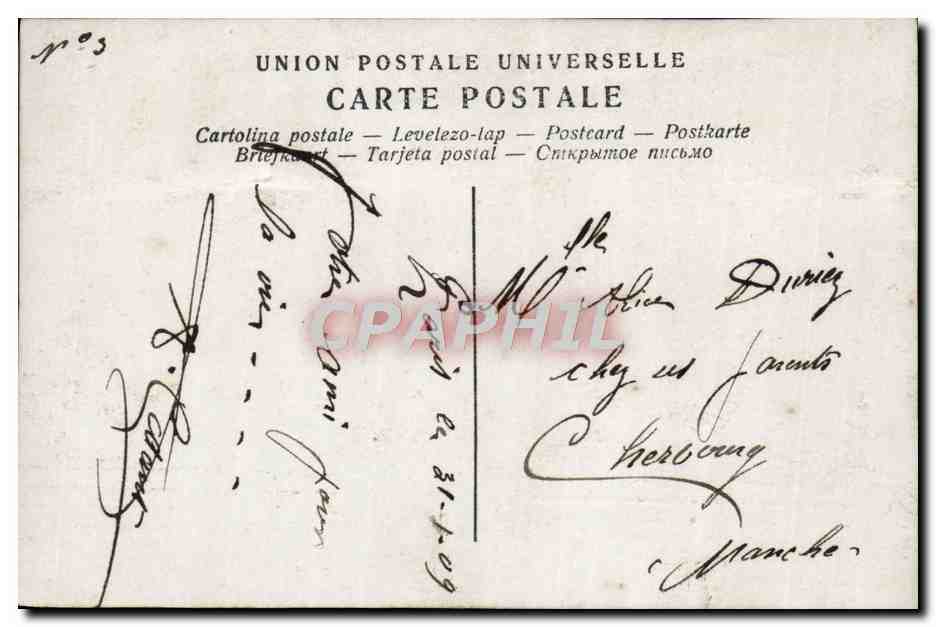 Nº 3
UNION POSTALE UNIVERSELLE
CARTE POSTALE
Cartolina postale — Levelezo-lap — Postcard — Postkarte
Briefkaart — Tarjeta postal — Открытое письмо
Paris le 31-1-09
Votre ami pour
la vie - - - -
Mlle Alice Duriez
chez ses parents
Cherbourg
- Manche -
CPAPHIL